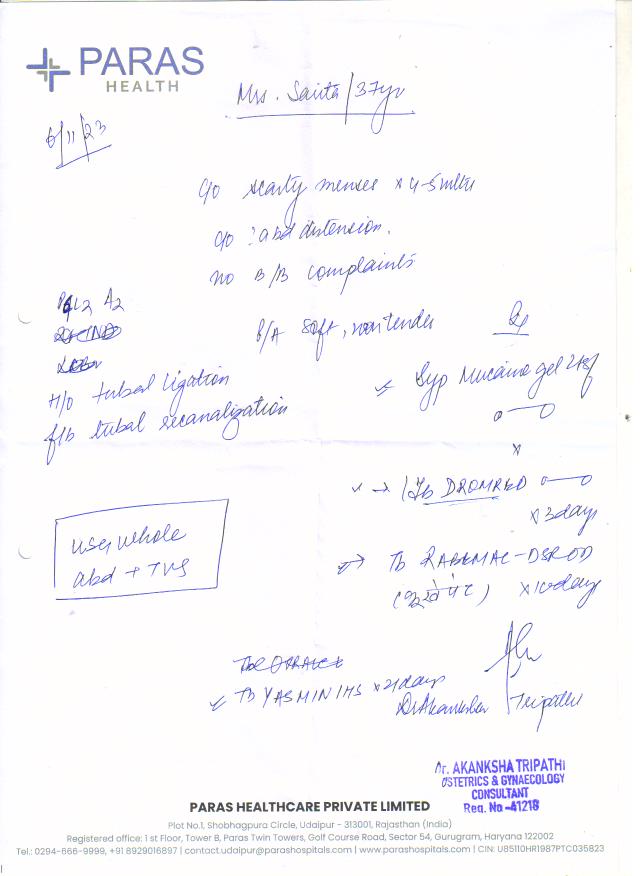 PARAS
HEALTH
Mrs. Sarita/37yr
6/11/23
c/o scanty menses x 4-5mths
c/o ? abd distension.
no B/B complaints
L2 A2
P/A soft, nontender
Rx
H/o tubal ligation
f/b tubal recanalization
Syp Mucaine gel 2tsf
x
Tb DROMRED
x 3days
USG whole
abd + TVS
Tb RABEMAC-DSR OD
(खाली पेट) x 10days
Tb YASMIN 1HS x 21days
Dr Akanksha Tripathi
Dr. AKANKSHA TRIPATHI
OSTETRICS & GYNAECOLOGY
CONSULTANT
Reg. No -41218
PARAS HEALTHCARE PRIVATE LIMITED
Plot No.1, Shobhagpura Circle, Udaipur - 313001, Rajasthan (India)
Registered office: 1 st Floor, Tower B, Paras Twin Towers, Golf Course Road, Sector 54, Gurugram, Haryana 122002
Tel.: 0294-666-9999, +91 8929016897 | contact.udaipur@parashospitals.com | www.parashospitals.com | CIN: U85110HR1987PTC035823